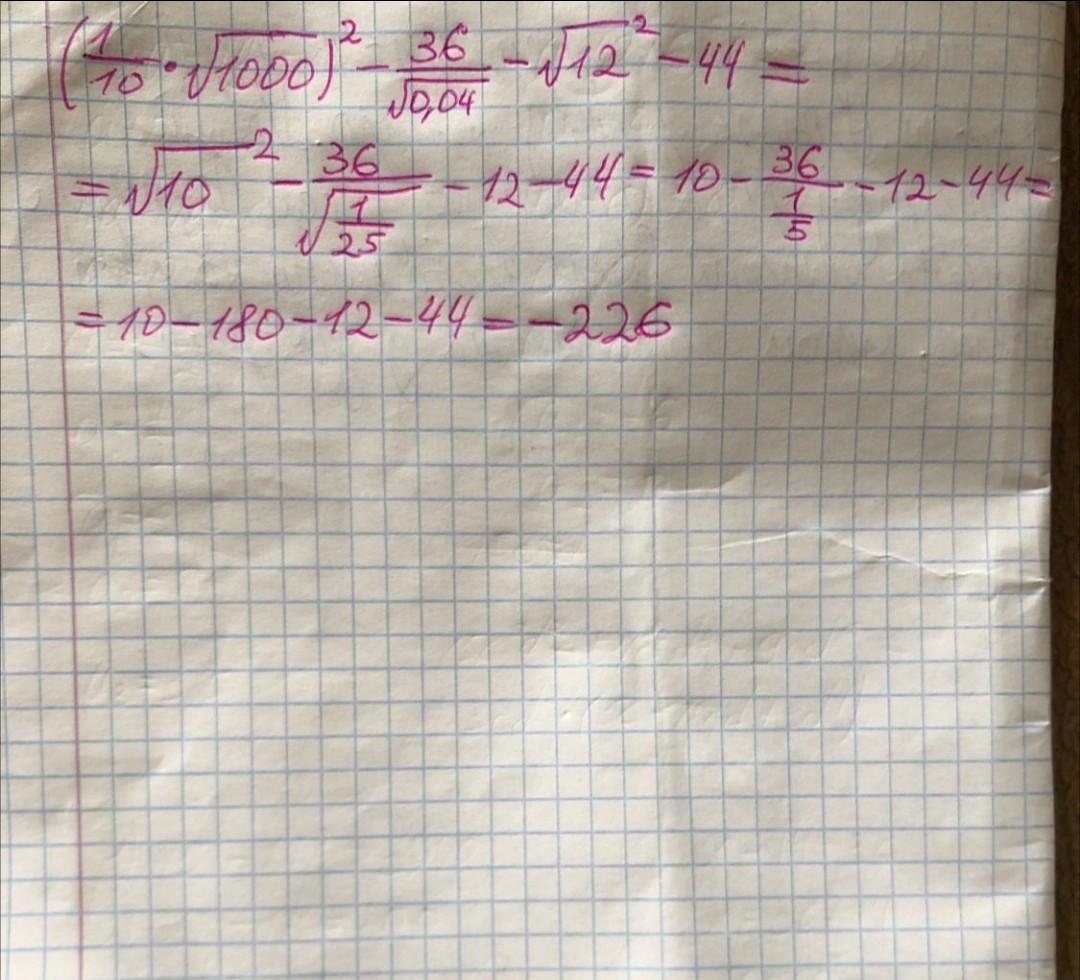 (1/10 · √1000)² − 36/√0,04 − √12² − 44 =
= √10² − 36/√(1/25) − 12 − 44 = 10 − 36/(1/5) − 12 − 44 =
= 10 − 180 − 12 − 44 = −226